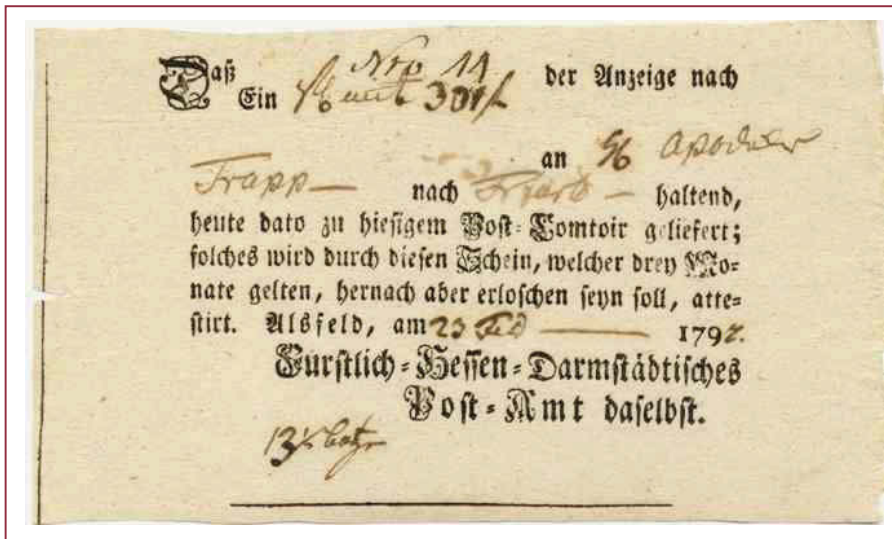 Daß Nro 11 der Anzeige nach
Ein 301 f
an Apodeker
Trapp — nach — haltend,
heute dato zu hiesigem Post-Comtoir geliefert;
solches wird durch diesen Schein, welcher drey Mo-
nate gelten, hernach aber erloschen seyn soll, atte-
stirt. Alsfeld, am 23 Feb — 1792.
Fürstlich-Hessen-Darmstädtisches
Post-Amt daselbst.
13½ batz